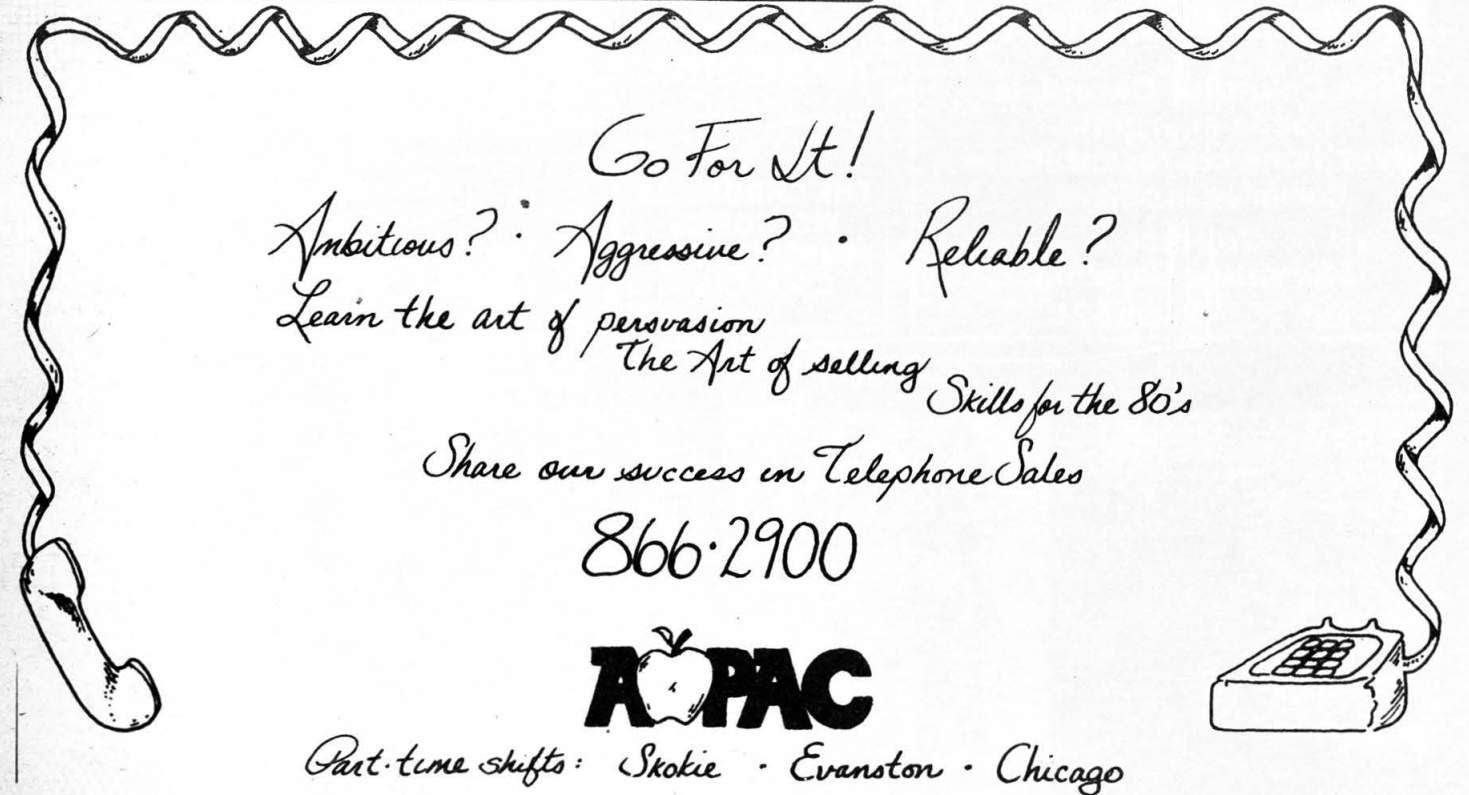 Go For It!
Ambitious? · Aggressive? · Reliable?
Learn the art of persuasion
The Art of selling
Skills for the 80's
Share our success in Telephone Sales
866·2900
A PAC
Part·time shifts: Skokie · Evanston · Chicago